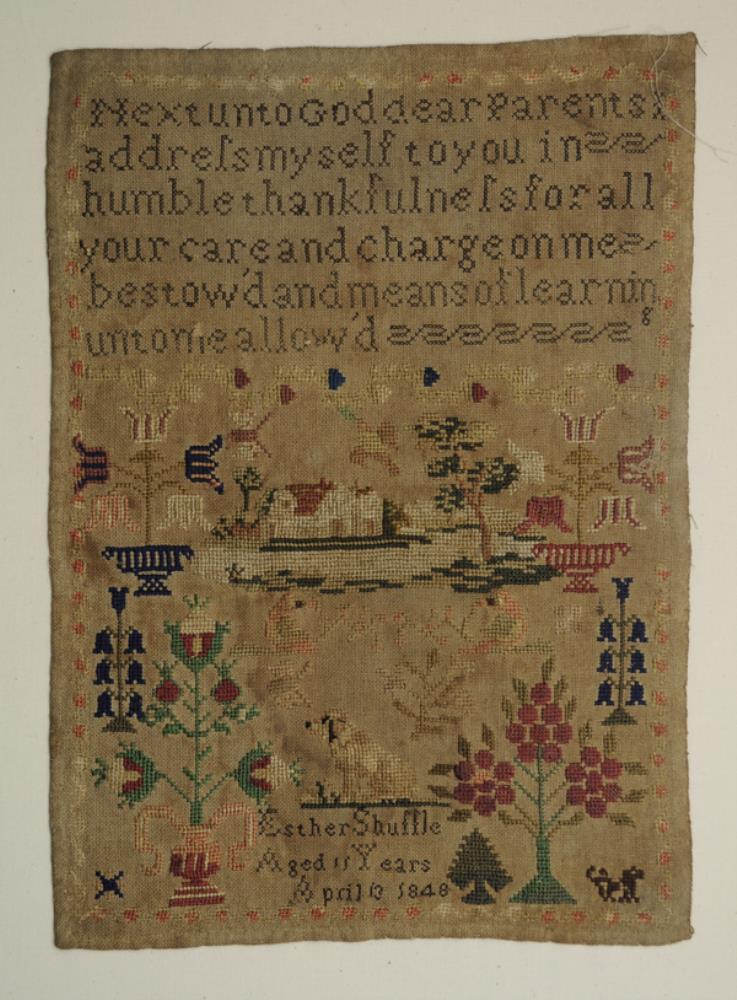 Next unto God dear Parents I
addreſs myself to you in
humble thankfulneſs for all
your care and charge on me
bestow'd and means of learning
unto me allow'd
Esther Shuffle
Aged 11 Years
April 13 1848